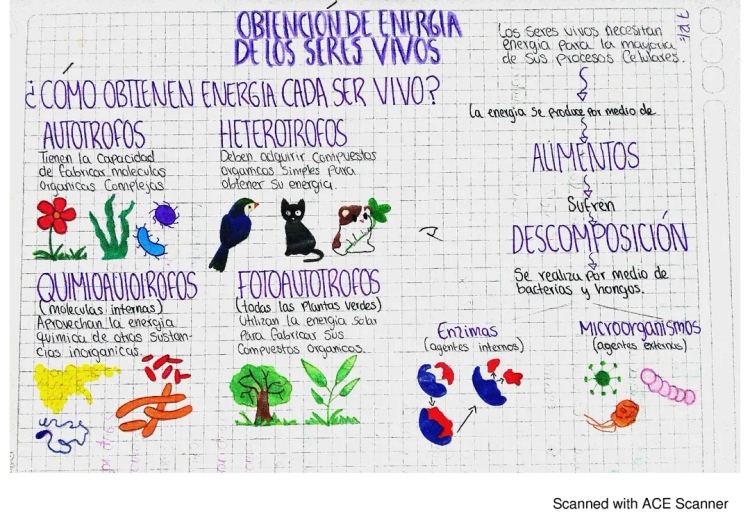 OBTENCIÓN DE ENERGIA
DE LOS SERES VIVOS
¿CÓMO OBTIENEN ENERGIA CADA SER VIVO?
AUTOTROFOS
Tienen la capacidad
de fabricar moleculas
organicas complejas
HETEROTROFOS
Deben adquirir compuestos
organicos simples para
obtener su energia.
QUIMIOAUTOTROFOS
(moleculas internas)
Aprovechan la energia
química de otras sustan-
cias inorganicas.
FOTOAUTOTROFOS
(todas las Plantas verdes)
Utilizan la energia solar
para fabricar sus
Compuestos organicos.
Los seres vivos necesitan
energia para la mayoria
de sus procesos celulares.
La energia se produce por medio de
ALIMENTOS
Sufren
DESCOMPOSICIÓN
Se realiza por medio de
bacterias y hongos.
Enzimas
(agentes internos)
Microorganismos
(agentes externos)
Scanned with ACE Scanner